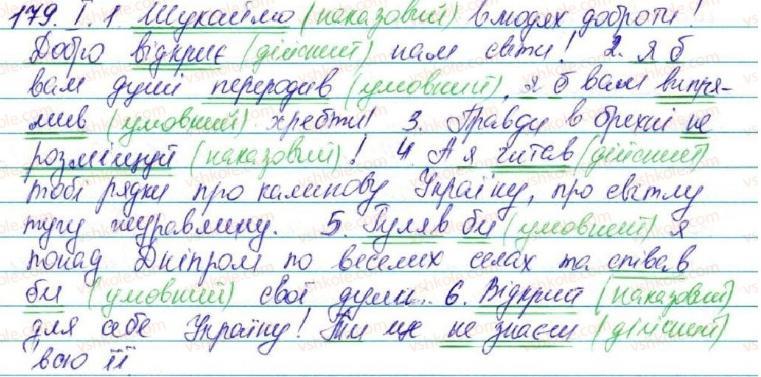 179. I. 1. Шукаймо (наказовий) в людях доброти!
Добро відкриє (дійсний) нам світи! 2. Я б
вам душі переродив (умовний), я б вам випря-
мив (умовний) хребти! 3. Правди в брехні не
розмішуй (наказовий)! 4 А я читав (дійсний)
тобі рядки про калинову Україну, про світлу
тугу журавлину. 5. Гуляв би (умовний) я
понад Дніпром по веселих селах та співав
би (умовний) свої думи. 6. Відкрий (наказовий)
для себе Україну! Ти ще не знаєш (дійсний)
всю її